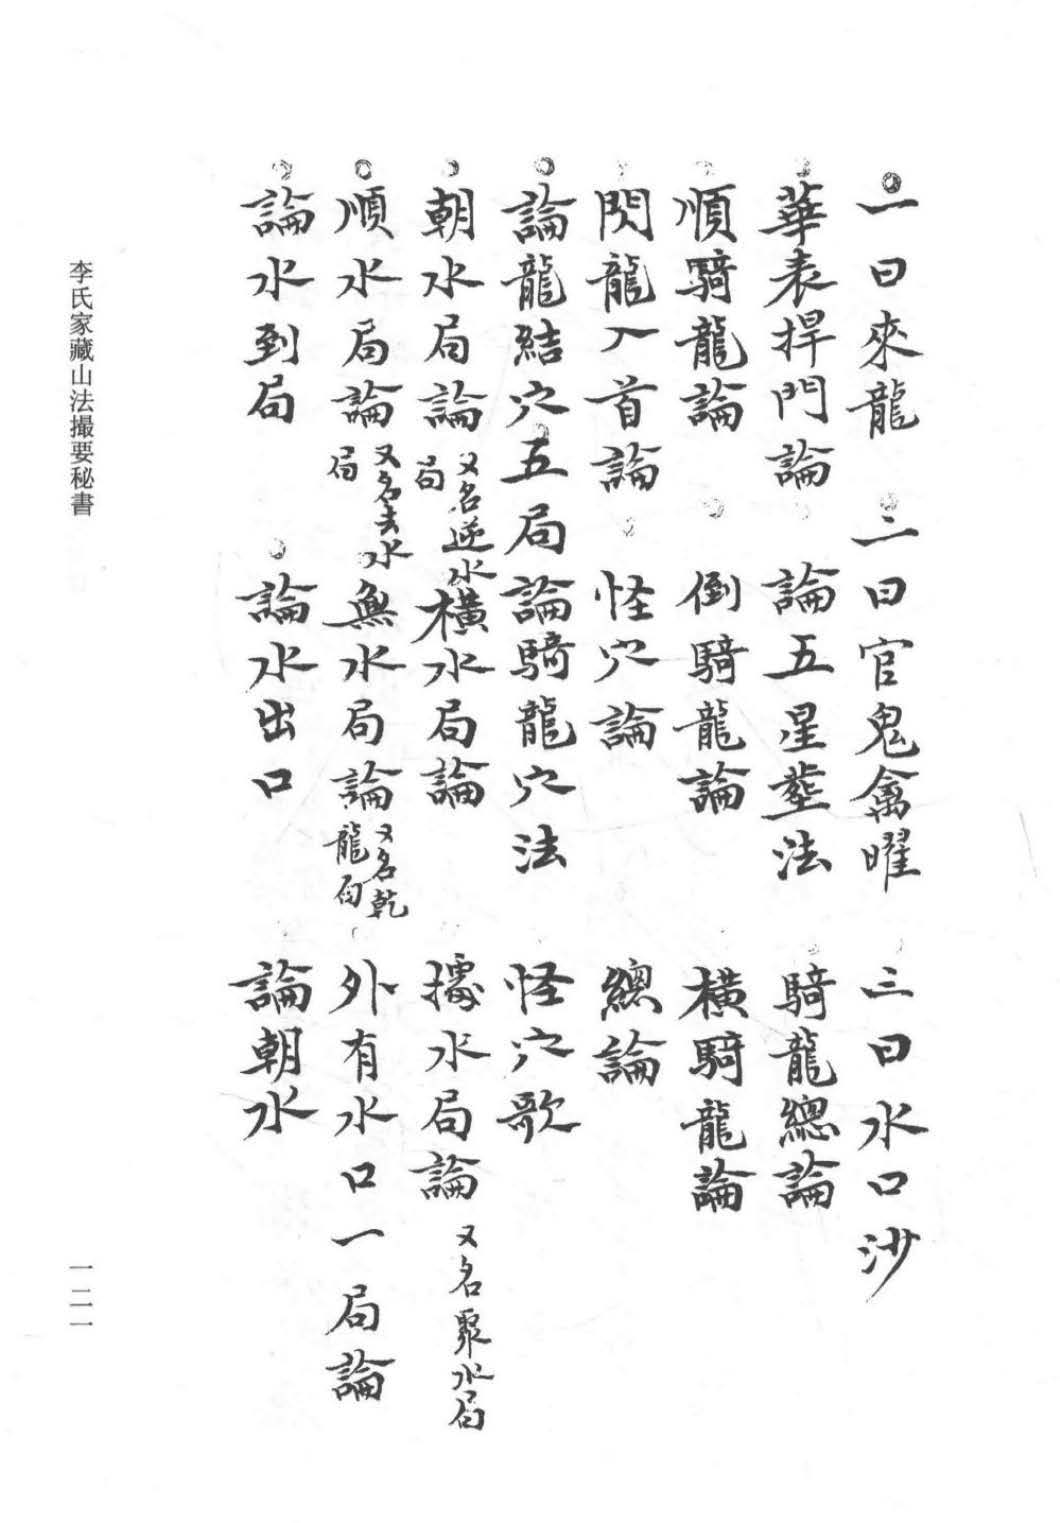 一曰來龍　二曰官鬼禽曜　三曰水口沙
華表捍門論　論五星塟法　騎龍總論
順騎龍論　倒騎龍論　橫騎龍論
閃龍入首論　怪穴論　總論
論龍結穴五局論騎龍穴法　怪穴歌
朝水局論又名逆水局　橫水局論　據水局論又名聚水局
順水局論又名去水局　無水局論又名乾龍局　外有水口一局論
論水到局　論水出口　論朝水
李氏家藏山法撮要秘書
一二一